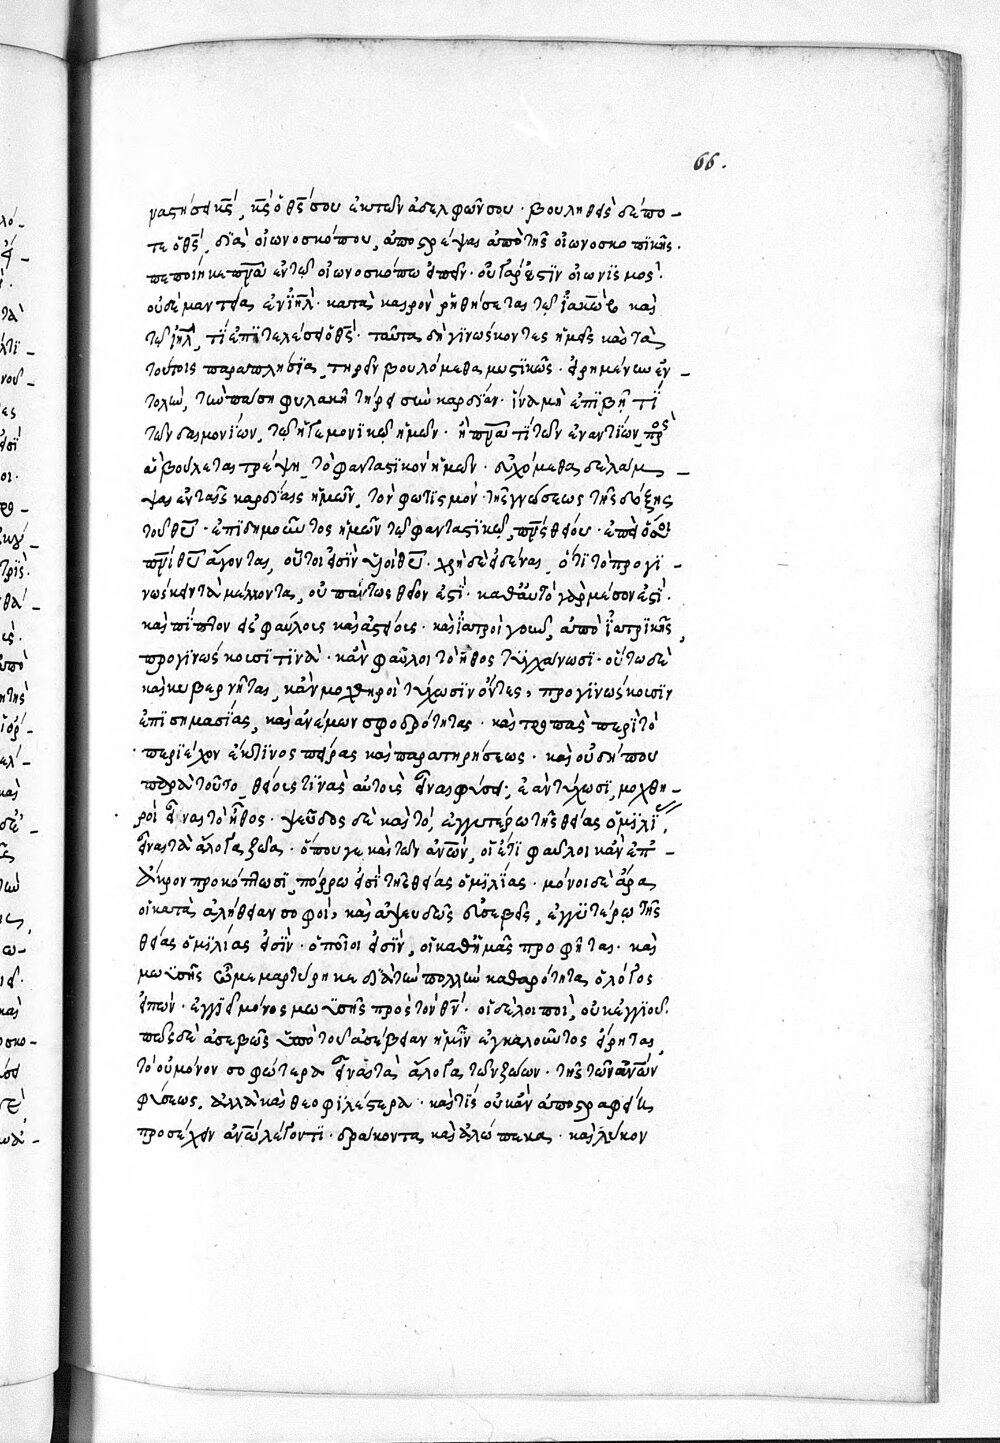 66.
ναστήσει κς̄, κς̄ ὁ θς̄ σου ἐκ τῶν ἀδελφῶν σου· βουληθεὶς δέ πο-
τε ὁ θς̄, διὰ οἰωνοσκόπου, ἀποστρέψαι ἀπὸ τῆς οἰωνοσκοπικῆς·
πεποίηκε πνᾱ ἐν τῷ οἰωνοσκόπῳ εἰπεῖν· οὐ γάρ ἐστιν οἰωνισμὸς·
οὐδὲ μαντεία ἐν ιηλ̄· κατὰ καιρὸν ῥηθήσεται τῷ ἰακὼβ καὶ
τῷ ιηλ̄, τί ἐπιτελέσει ὁ θς̄· ταῦτα δὴ γινώσκοντες ἡμεῖς καὶ τὰ
τούτοις παραπλήσια, τηρεῖν βουλόμεθα μυστικῶς· εἰρημένην ἐν-
τολὴν, τὴν πάσῃ φυλακῇ τήρει σὴν καρδίαν· ἵνα μὴ ἐπιβῇ τὶ
τῶν δαιμονίων, τῷ ἡγεμονικῷ ἡμῶν· ἢ πνᾱ τι τῶν ἐναντίων, πρὸς
ἃ βούλεται τρέψῃ, τὸ φανταστικὸν ἡμῶν· εὐχόμεθα δὲ λάμ-
ψαι ἐν ταῖς καρδίαις ἡμῶν, τὸν φωτισμὸν τῆς γνώσεως τῆς δόξης
τοῦ θῡ· ἐπιδημοῦντος ἡμῶν τῷ φανταστικῷ, πνς̄ θείου· ἐπεὶ ὅσοι
πνῑ θῡ ἄγονται, οὗτοι εἰσὶν υἱοὶ θῡ· χρὴ δὲ εἰδέναι, ὅτι τὸ προγι-
νώσκειν τὰ μέλλοντα, οὐ πάντως θεῖον ἐστί· καθ' αὑτὸ γὰρ μέσον ἐστί·
καὶ πίπτον εἰς φαύλους καὶ ἀστείους· καὶ ἰατροὶ γοῦν, ἀπὸ ἰατρικῆς,
προγινώσκουσί τινα· κἂν φαῦλοι τὸ ἦθος τυγχάνωσι· οὕτω δὲ
καὶ κυβερνῆται, κἂν μοχθηροὶ τύχωσιν ὄντες, προγινώσκουσιν
ἐπισημασίας, καὶ ἀνέμων σφοδρότητας· καὶ τροπὰς περὶ τὸ
περιέχον ἔκ τινος πείρας καὶ παρατηρήσεως· καὶ οὐ δή που
παρὰ τοῦτο, θείους τινὰς αὐτοὺς εἶναι φήσει· ἐὰν τύχωσι, μοχθη-
ροὶ εἶναι τὸ ἦθος· ψεῦδος δὲ καὶ τό, ἐγγυτέρω τῆς θείας ὁμιλί,
εἶναι τὰ ἄλογα ζῶα· ὅπου γε καὶ τῶν ἀνῶν, οἱ ἔτι φαῦλοι κἂν ἐπ'-
ἄκρον προκόπτωσι, πόρρω εἰσὶ τῆς θείας ὁμιλίας· μόνοι δὲ ἄρα
οἱ κατὰ ἀλήθειαν σοφοὶ, καὶ ἀψευδῶς εὐσεβεῖς, ἐγγυτέρω τῆς
θείας ὁμιλίας εἰσίν· ὁποῖοι εἰσίν, οἱ καθ' ἡμᾶς προφῆται· καὶ
μωϋσῆς ᾧ μεμαρτύρηκε διὰ τὴν πολλὴν καθαρότητα, ὁ λόγος
εἰπών· ἐγγιεῖ μόνος μωϋσῆς πρὸς τὸν θν̄· οἱ δὲ λοιποὶ, οὐκ ἐγγιοῦ·
πῶς δὲ ἀσεβῶς ὑπὸ τοῦ ἀσέβειαν ἡμῖν ἐγκαλοῦντος εἴρηται,
τὸ οὐ μόνον σοφώτερα εἶναι τὰ ἄλογα τῶν ζώων· τῆς τῶν ἀνῶν
φύσεως, ἀλλὰ καὶ θεοφιλέστερα· καὶ τίς οὐκ ἂν ἀποτραφείη
προσέχειν ἀνῷ λέγοντι· δράκοντα καὶ ἀλώπεκα· καὶ λύκον